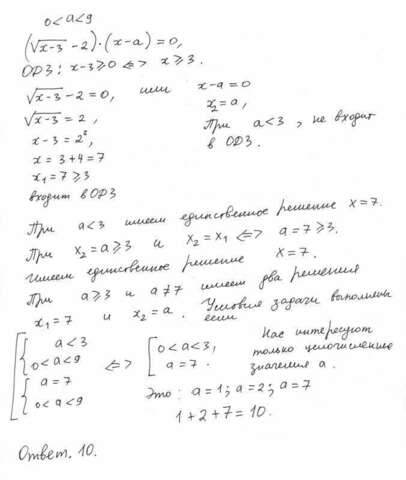 0 < a < 9
(√x-3 - 2)·(x-a) = 0,
ОДЗ: x-3≥0 <=> x≥3.
√x-3 - 2 = 0, или x-a=0
√x-3 = 2, x₂=a,
x-3 = 2², При a<3, не входит
x = 3+4=7 в ОДЗ.
x₁=7≥3
входит в ОДЗ
При a<3 имеем единственное решение x=7.
При x₂=a≥3 и x₂=x₁ <=> a=7≥3.
Имеем единственное решение x=7.
При a≥3 и a≠7 имеем два решения
x₁=7 и x₂=a. Условия задачи выполнимы
если
[ { a<3
0<a<9 <=> [ 0<a<3,
a=7.
{ a=7
0<a<9
Нас интересуют
только целочисленные
значения a.
Это: a=1; a=2; a=7
1+2+7=10.
Ответ. 10.